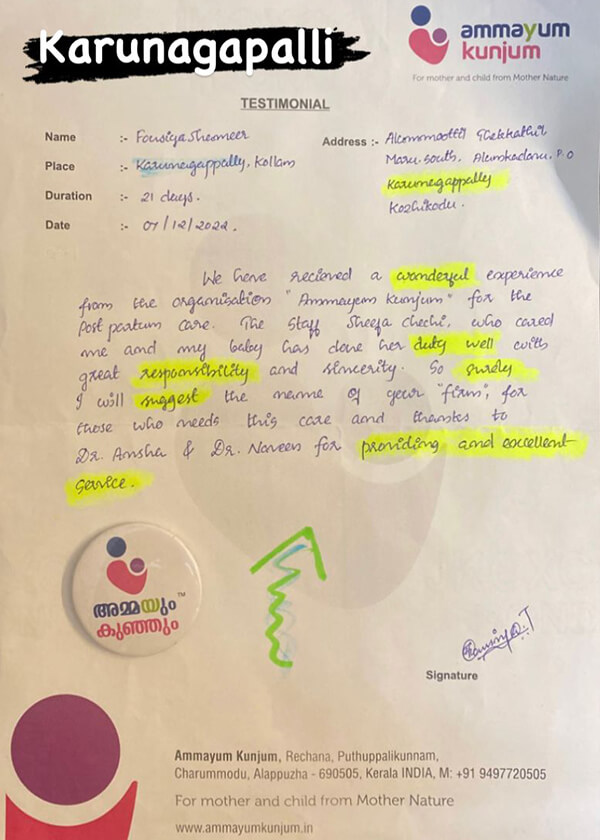 Karunagapalli
ammayum
kunjum
For mother and child from Mother Nature
TESTIMONIAL
Name :- Fousiya Shameer
Place :- Karunagappally, Kollam
Duration :- 21 days.
Date :- 07/12/2022.
Address :-
Maru. South, P O
Karunagappally
Kozhikodu.
We have recieved a wonderful experience
from the organisation "Ammayum Kunjum" for the
Post partum care. The Staff Sheeja chechi, who cared
me and my baby has done her duty well with
great responsibility and sincerity. So surely
I will suggest the name of your "firm", for
those who needs this care and thanks to
Dr. Ansha & Dr. Naveen for providing and excellent
service.
അമ്മയും TM
കുഞ്ഞും
Signature
Ammayum Kunjum, Rechana, Puthuppalikunnam,
Charummodu, Alappuzha - 690505, Kerala INDIA, M: +91 9497720505
For mother and child from Mother Nature
www.ammayumkunjum.in